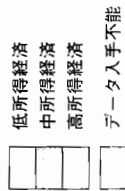 低所得経済
中所得経済
高所得経済
データ入手不能